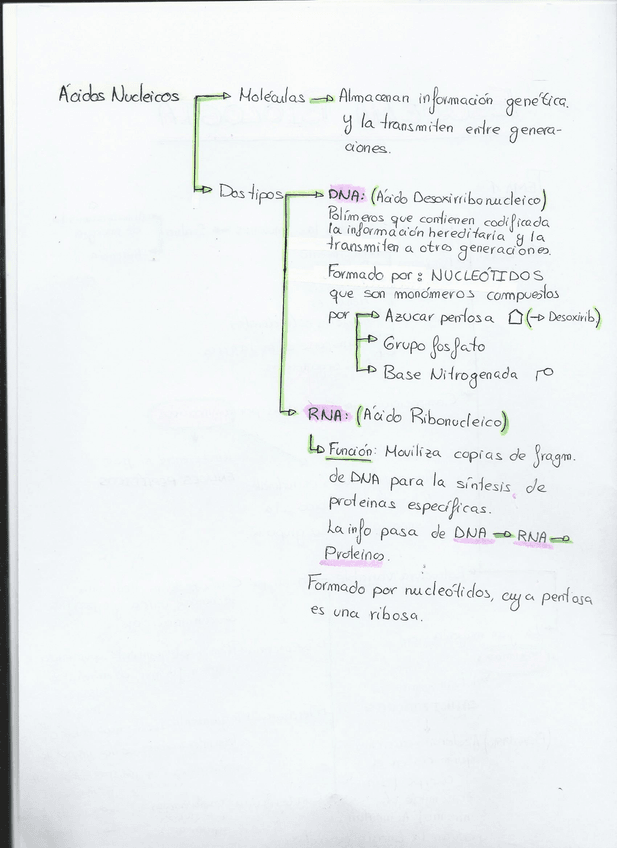 Ácidos Nucleicos → Moléculas → Almacenan información genética.
y la transmiten entre genera-
ciones.
Dos tipos → DNA: (Ácido Desoxirribonucleico)
Polímeros que contienen codificada
la información hereditaria y la
transmiten a otras generaciones.
Formado por: NUCLEÓTIDOS
que son monómeros compuestos
por → Azucar pentosa (→ Desoxirib)
→ Grupo fosfato
→ Base Nitrogenada
RNA: (Ácido Ribonucleico)
Función: Moviliza copias de fragm.
de DNA para la síntesis de
proteinas específicas.
La info pasa de DNA → RNA →
Proteínas.
Formado por nucleótidos, cuya pentosa
es una ribosa.